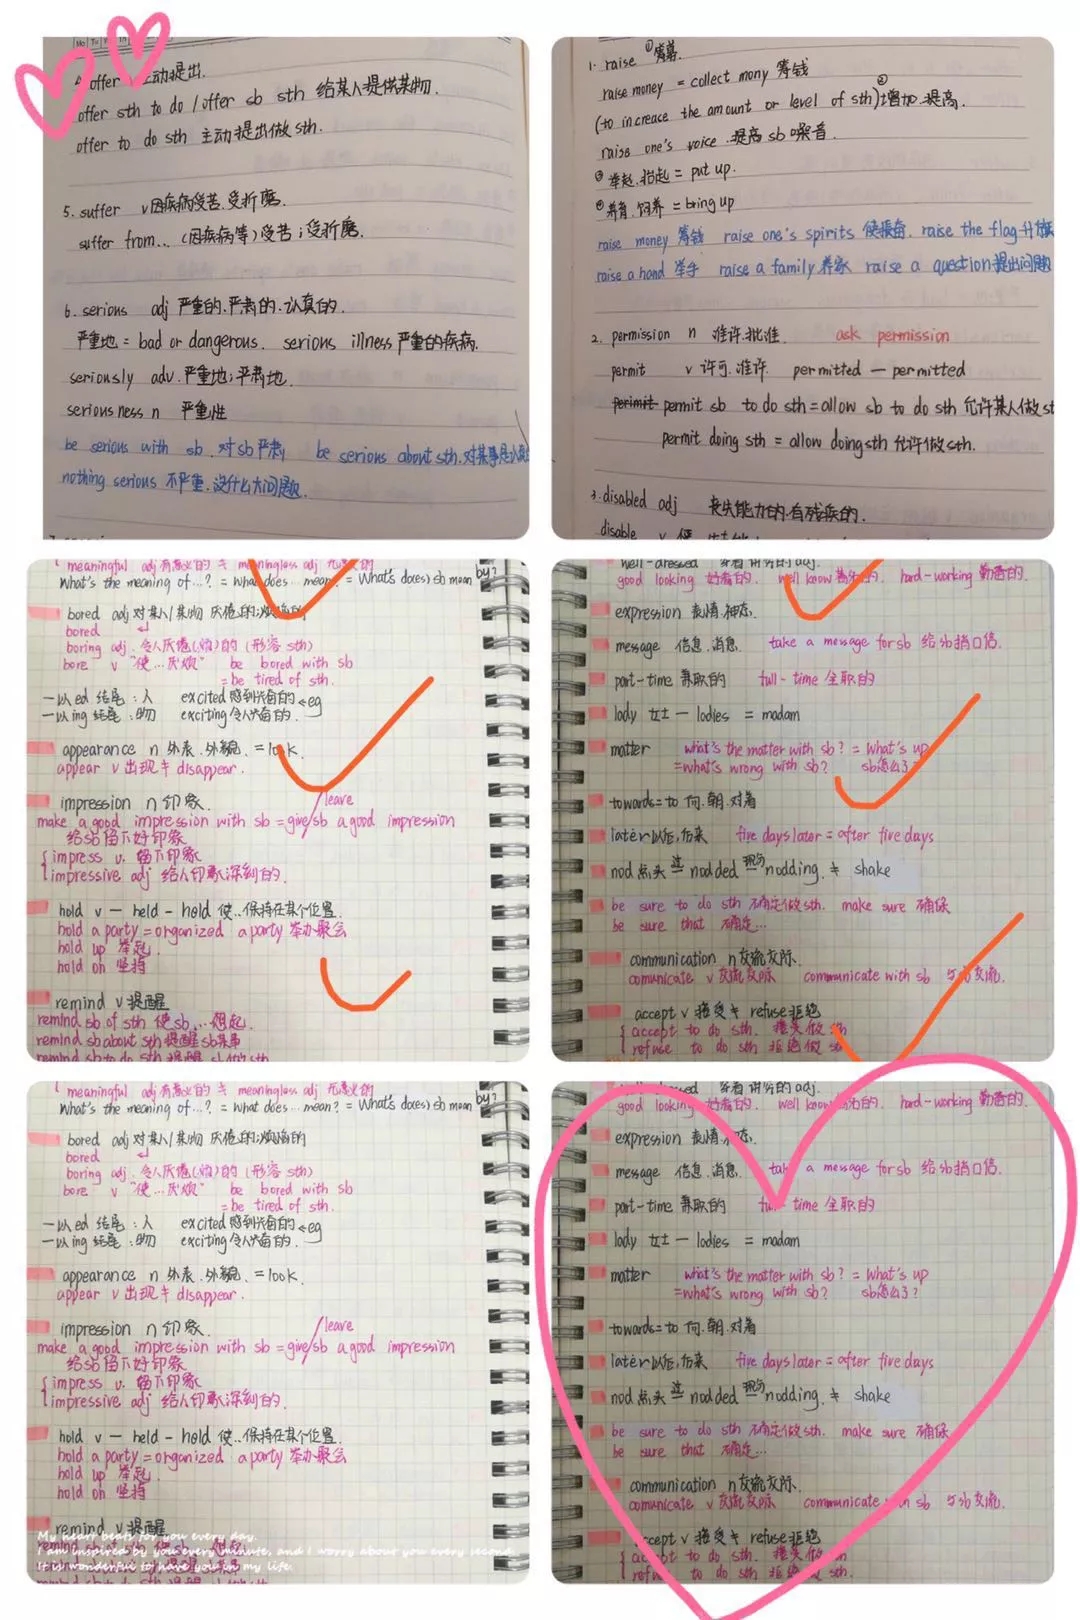 4. offer 主动提出.
offer sth to do / offer sb sth 给某人提供某物.
offer to do sth 主动提出做sth.
5. suffer v因疾病受苦.受折磨.
suffer from... (因疾病等)受苦;受折磨.
6. serious adj 严重的.严肃的.认真的.
严重地 = bad or dangerous. serious illness 严重的疾病.
seriously adv.严重地;严肃地.
seriousness n 严重性
be serious with sb.对sb严肃 be serious about sth.对某事是认真
nothing serious 不严重.没什么大问题.
1. raise ①筹募.
raise money = collect mony 筹钱
(to increace the amount or level of sth)②增加.提高.
raise one's voice.提高sb嗓音.
③举起.抬起 = put up.
④养育.饲养 = bring up
raise money 筹钱 raise one's spirits 使振奋. raise the flag 升旗
raise a hand 举手 raise a family 养家 raise a question 提出问题
2. permission n 准许.批准. ask permission
permit v 许可.准许 permitted — permitted
perimit permit sb to do sth = allow sb to do sth 允许某人做st
permit doing sth = allow doing sth 允许做sth.
3. disabled adj 丧失能力的.有残疾的.
disable v 使
meaningful adj有意义的 ≠ meaningless adj 无意义的
What's the meaning of...? = What does... mean? = What's do(es) sb mean by?
bored adj 对某人/某物 厌倦的;烦恼的
bored
boring adj.令人厌倦(烦)的 (形容sth)
bore v "使...厌烦" be bored with sb
= be tired of sth.
一以ed 结尾:人 excited 感到兴奋的 eg
一以ing 结尾:物 exciting 令人兴奋的.
appearance n 外表.外貌. = look.
appear v 出现 ≠ disappear.
impression n 印象.
leave
make a good impression with sb = give/sb a good impression
给sb留下好印象
impress v. 留下印象
impressive adj 给人印象深刻的.
hold v — held - hold 使..保持在某个位置.
hold a party = organized a party 举办聚会
hold up 举起.
hold on 坚持
remind v 提醒
remind sb of sth 使sb...想起.
remind sb about sth 提醒sb某事
remind sb to do sth 提醒 sb做sth
well-dressed 穿着讲究的adj.
good looking 好看的. well know 著名的. hard-working 勤奋的.
expression 表情.神态.
message 信息.消息. take a message for sb 给sb捎口信.
part-time 兼职的 full-time 全职的
lady 女士 — ladies = madam
matter what's the matter with sb? = What's up
=what's wrong with sb? sb怎么了?
towards = to 向.朝.对着
later 以后,后来 five days later = after five days
nod 点头 过 nodded 现分 nodding. ≠ shake
be sure to do sth 确定做sth. make sure 确保
be sure that 确定...
communication n交流交际.
comunicate v 交流交际 communicate with sb 与sb交流.
accept v 接受 ≠ refuse 拒绝
accept to do sth. 接受做sth
refuse to do sth 拒绝做sth
meaningful adj有意义的 ≠ meaningless adj 无意义的
What's the meaning of...? = What does... mean? = What's do(es) sb mean by?
bored adj 对某人/某物 厌倦的;烦恼的
bored
boring adj.令人厌倦(烦)的 (形容sth)
bore v "使...厌烦" be bored with sb
= be tired of sth.
一以ed 结尾:人 excited 感到兴奋的 eg
一以ing 结尾:物 exciting 令人兴奋的.
appearance n 外表.外貌. = look.
appear v 出现 ≠ disappear.
impression n 印象.
leave
make a good impression with sb = give/sb a good impression
给sb留下好印象
impress v. 留下印象
impressive adj 给人印象深刻的.
hold v — held - hold 使..保持在某个位置.
hold a party = organized a party 举办聚会
hold up 举起.
hold on 坚持
remind v 提醒
My heart beats for you every day.
I am inspired by you every minute, and I worry about you every second.
It is wonderful to have you in my life.
good looking 好看的. well know 著名的. hard-working 勤奋的.
expression 表情.神态.
message 信息.消息. take a message for sb 给sb捎口信.
part-time 兼职的 full-time 全职的
lady 女士 — ladies = madam
matter what's the matter with sb? = What's up
=what's wrong with sb? sb怎么了?
towards = to 向.朝.对着
later 以后,后来 five days later = after five days
nod 点头 过 nodded 现分 nodding. ≠ shake
be sure to do sth 确定做sth. make sure 确保
be sure that 确定...
communication n交流交际.
comunicate v 交流交际 communicate with sb 与sb交流.
accept v 接受 ≠ refuse 拒绝
accept to do sth. 接受做sth
refuse to do sth 拒绝做sth.